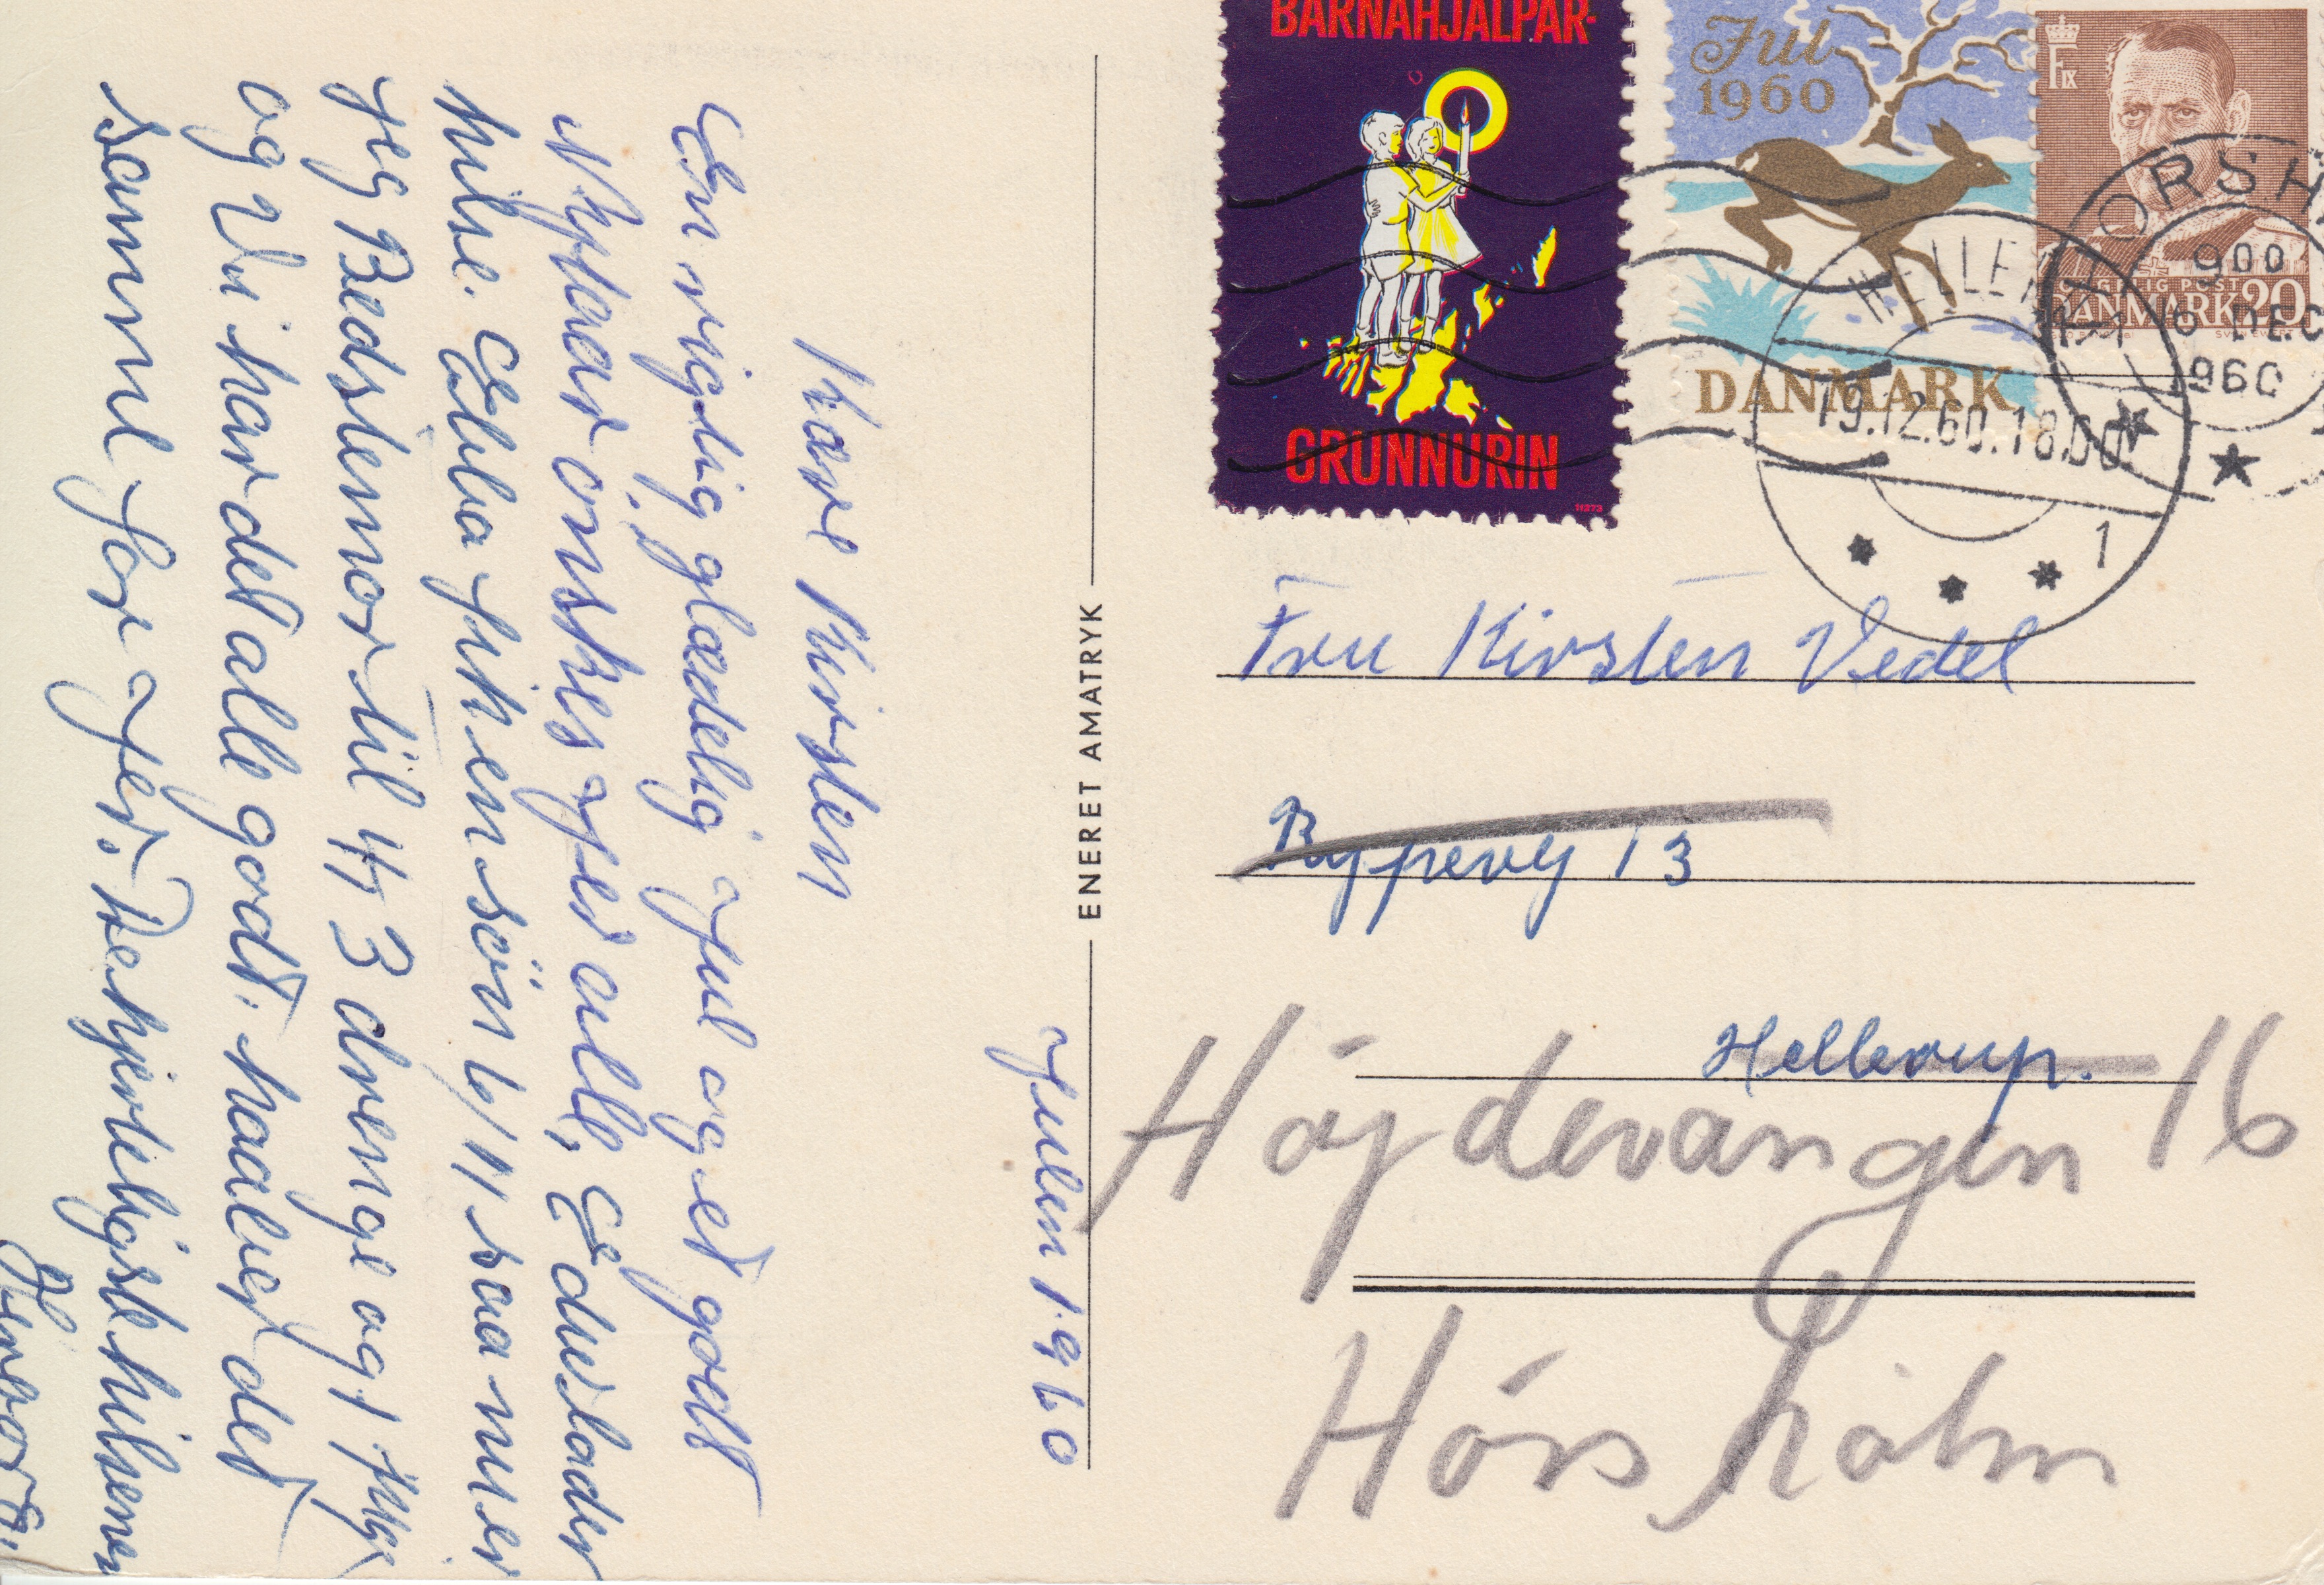 Julen 1960
Kære Kirsten
En rigtig glædelig Jul og et godt
Nytaar önskes Jer alle, Edvid lader
hilse. Ebba fik en sön 6/11 saa nu er
jeg Bedstemor til 4, 3 drenge og 1 Pige
og Vi har det alle godt. haaber det
samme for Jer. De hjerteligste hilsener
BARNAHJÁLPAR-
GRUNNURIN
11273
Jul
1960
DANMARK
FIX
DANMARK 20
HELLERUP
19.12.60.18.00
1
HORSH
900
DEC
1960
ENERET AMATRYK
Fru Kirsten Vedel
Rypevej 13
Hellerup.
Höjdevangen 16
Hörsholm